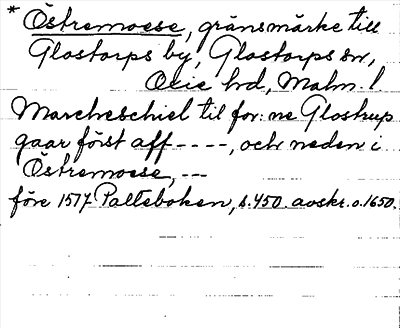 * Östremoese, gränsmärke till
Glostorps by, Glostorps sn,
Oxie hd, Malm. l
Marcheschiel til for: ne Glostrup
gaar först aff ----, och neden i
Östremoese, ---
före 1517 Palteboken, s. 450. avskr. o. 1650.